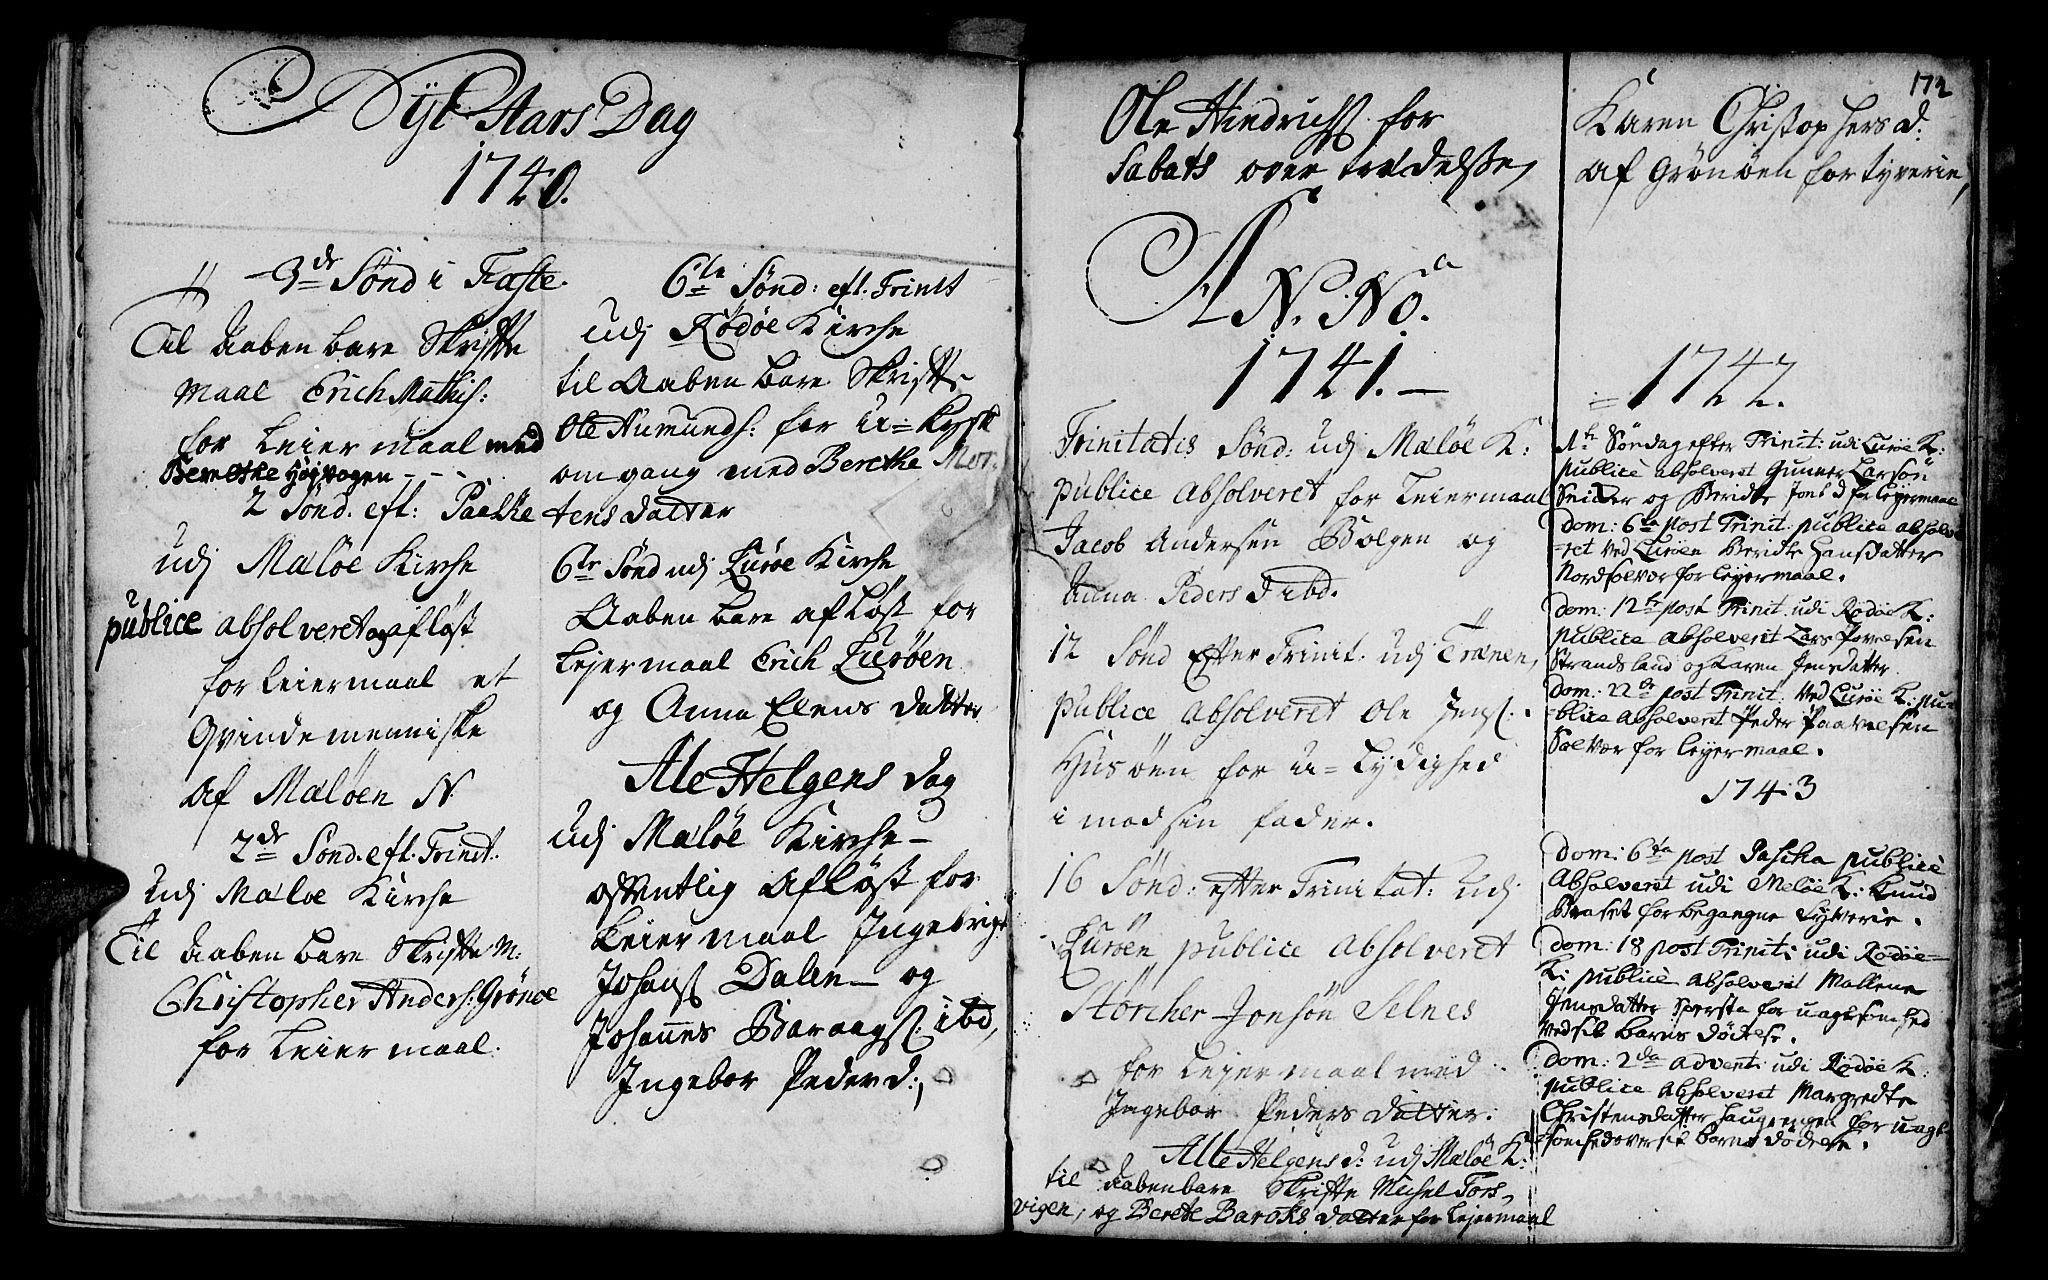 Nyt Aars Dag
1740.
3de Sønd i Faste.
Til Aabenbare Skrifte
maal Erich Mathis:
for Leiermaal med
Berethe Højvogen - - -
2 Sønd. eft: Paaske
udj Mæløe Kirche
publice absolveret og afløst
for Leiermaal et
Qvindemenniske
af Mæløen N.
2de Sønd. eft. Trinit.
udj Mæløe Kirche
Til Aabenbare Skrifte M:
Christopher Anders: Grönöe
for Leiermaal.
6te Sønd: eft. Trinit
udj Rödöe Kirche
til Aabenbare Skrifte
Ole Aumunds: for u=kysk
omgang med Berethe Mor-
tensdatter
6te Sønd udj Luröe Kirche
Aabenbare afløst for
Lejermaal Erich Luröen
og Anna Elensdatter
Ale Helgens Dag
udj Mæløe Kirche
offentlig afløst for
Leiermaal Ingebrigt
Johans: Dalen og
Johannes Baraags: ibd,
Ingebor Peder d:,
172
Ole Hindrichs: for
Sabats overtrædelse,
ANNo
1741.
Trinitatis Sønd: udj Mæløe K:
publice absolveret for Leiermaal
Jacob Andersen Bolgen og
Anna Peders D ibd.
12 Sønd Efter Trinit: udj Trænen,
publice absolveret Ole Jens:
Husöen for u=lydighed
imod sin fader.
16 Sønd: efter Trinitat: udj
Luröen publice absolveret
Störcher Jonsön Selnes
for Lejermaal med
Ingebor Pedersdatter.
Alle Helgens d: udj Mæløe K:
til Aabenbare Skrifte Michel Tors-
vigen, og Berete Baroksdatter for Lejermaal
Karen Christophers d:
af Grönöen for tyverie,
1742.
1te Söndag efter Trinit: udi Luröe K:
publicè absolveret Gunner Larsön
Snider og Berithe Jons d for Lejermaal
Dom: 6ta post Trinit. publice absolve
=ret ved Luröen Berithe Hansdatter
Nordsolvær for lejermaal.
Dom: 12te post Trinit. udi Rodöe K:
publice absolverit Lars Povelsen
Strandsland og Karen Jensdatter
Dom: 22de post Trinit. ved Luröe K: pu-
=blice absolverit Peder Paavelsen
Solvær for lejermaal.
1743
Dom: 6ta post Pascha publicè
Absolveret udi Meløe K: Knud
Braset for begangne tyverie.
Dom: 18 post Trinit: udi Rodöe
K: publicè absolverit Mallene
Jensdatter Sperste for uagtsomhed
ved sit barns dödelse.
Dom: 2da Advent: udi Rodöe K:
publice absolveret Margrethe
Christensdatter Haugvigen for uagt-
somhed over sit barns dödelse.